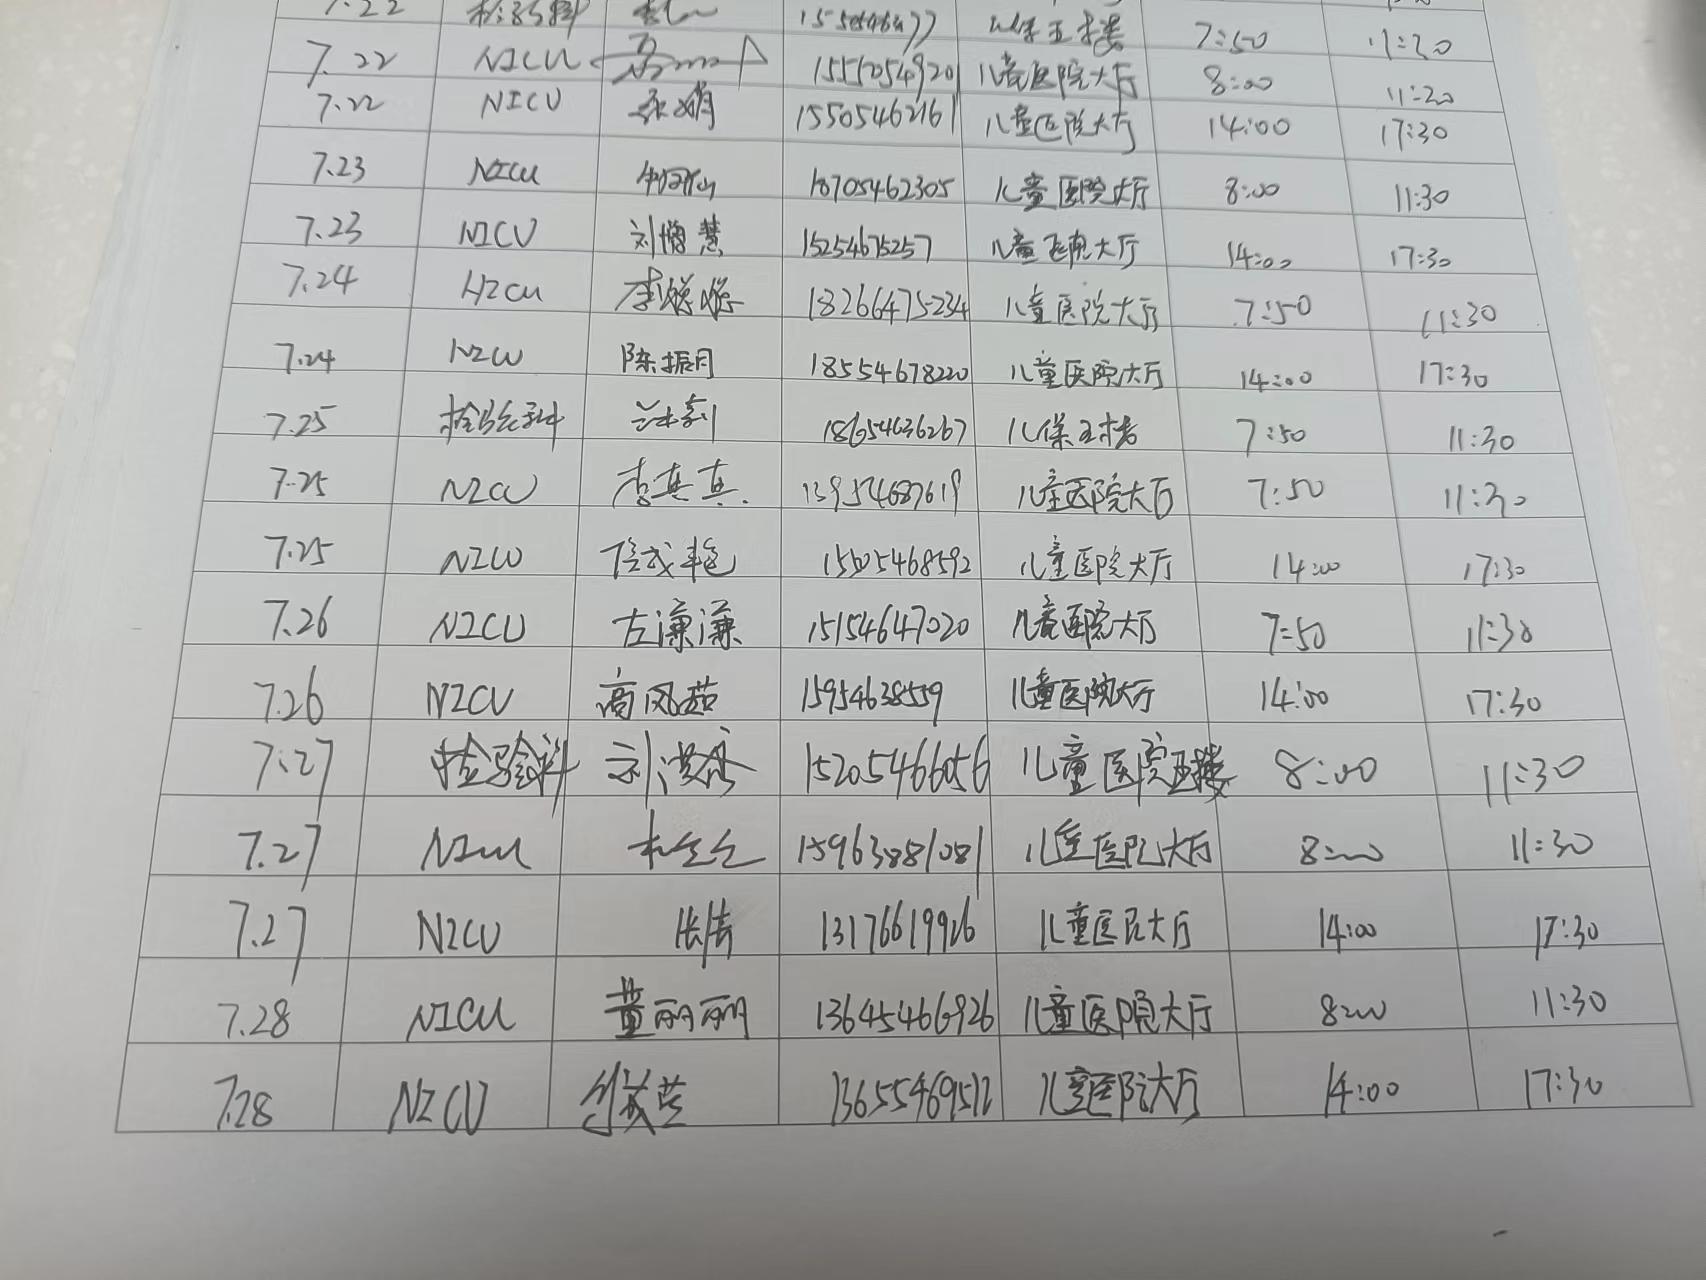 7.22 检验科 儿保五楼 7:50 11:30
7.22 NICU 儿童医院大厅 8:00 11:20
7.22 NICU 15505462161 儿童医院大厅 14:00 17:30
7.23 NICU 18705462305 儿童医院大厅 8:00 11:30
7.23 NICU 15254675257 儿童医院大厅 14:00 17:30
7.24 NICU 18266475234 儿童医院大厅 7:50 11:30
7.24 NICU 陈振月 18554678220 儿童医院大厅 14:00 17:30
7.25 检验科 18654636267 儿保五楼 7:50 11:30
7.25 NICU 李真真 13954687619 儿童医院大厅 7:50 11:30
7.25 NICU 15505468592 儿童医院大厅 14:00 17:30
7.26 NICU 古濂濂 15154647020 儿童医院大厅 7:50 11:30
7.26 NICU 高风茹 15954638559 儿童医院大厅 14:00 17:30
7.27 检验科 15205466056 儿童医院五楼 8:00 11:30
7.27 NICU 15963881081 儿童医院大厅 8:00 11:30
7.27 NICU 张倩 13176619926 儿童医院大厅 14:00 17:30
7.28 NICU 董丽丽 13645466926 儿童医院大厅 8:00 11:30
7.28 NICU 13655469512 儿童医院大厅 14:00 17:30